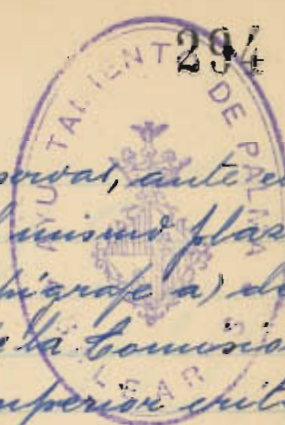 294
AYUNTAMIENTO DE PALMA
BALEARES
servas, ante
mismo plaz
pígrafe a) d
e la Comisión
uperior crite